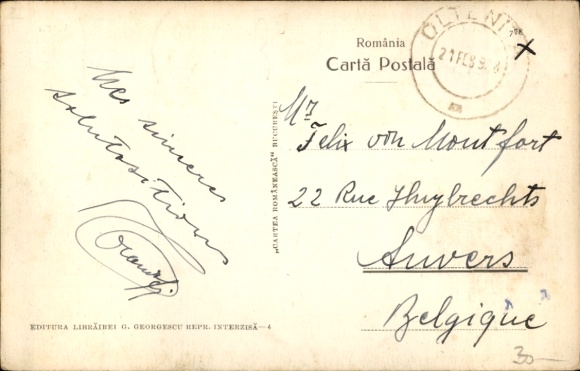 România
Cartă Postală
OLTENIȚA
21 FEB 9
Mes sinceres
salutasitions
Mr
Felix von Montfort
22 Rue Huybrechts
Anvers
Belgique
„CARTEA ROMÂNEASCĂ" BUCUREȘTI
EDITURA LIBRĂIREI G. GEORGESCU REPR. INTERZISĂ—4
30—